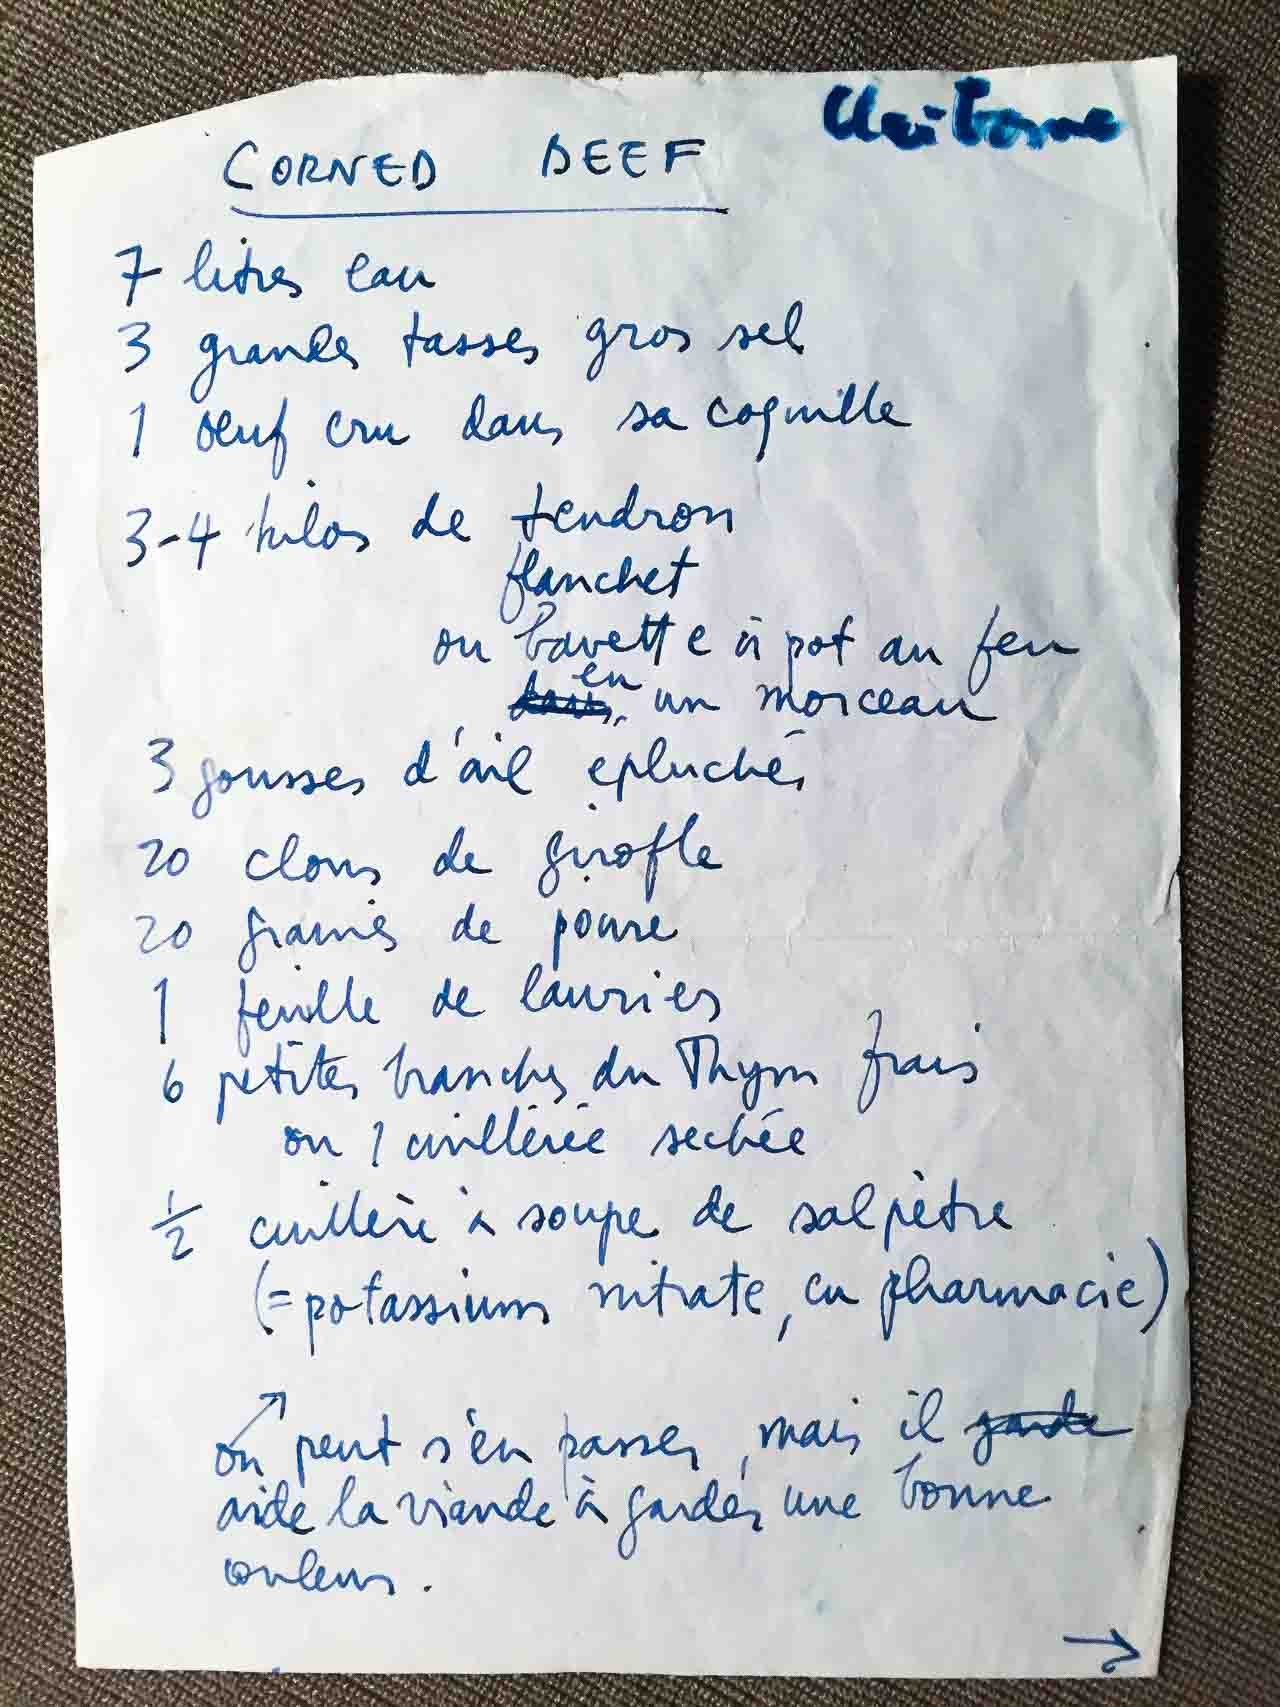 Claiborne
CORNED BEEF
7 litres eau
3 grandes tasses gros sel
1 oeuf cru dans sa coquille
3-4 kilos de tendron
flanchet
ou bavette à pot au feu
en un morceau
3 gousses d'ail epluchés
20 clous de girofle
20 graines de poivre
1 feuille de laurier
6 petites branches du Thym frais
ou 1 cuillérée sechée
1/2 cuillère à soupe de salpètre
(=potassium nitrate, en pharmacie)
↗
on peut s'en passer, mais il garde
aide la viande à garder une bonne
couleur.
→